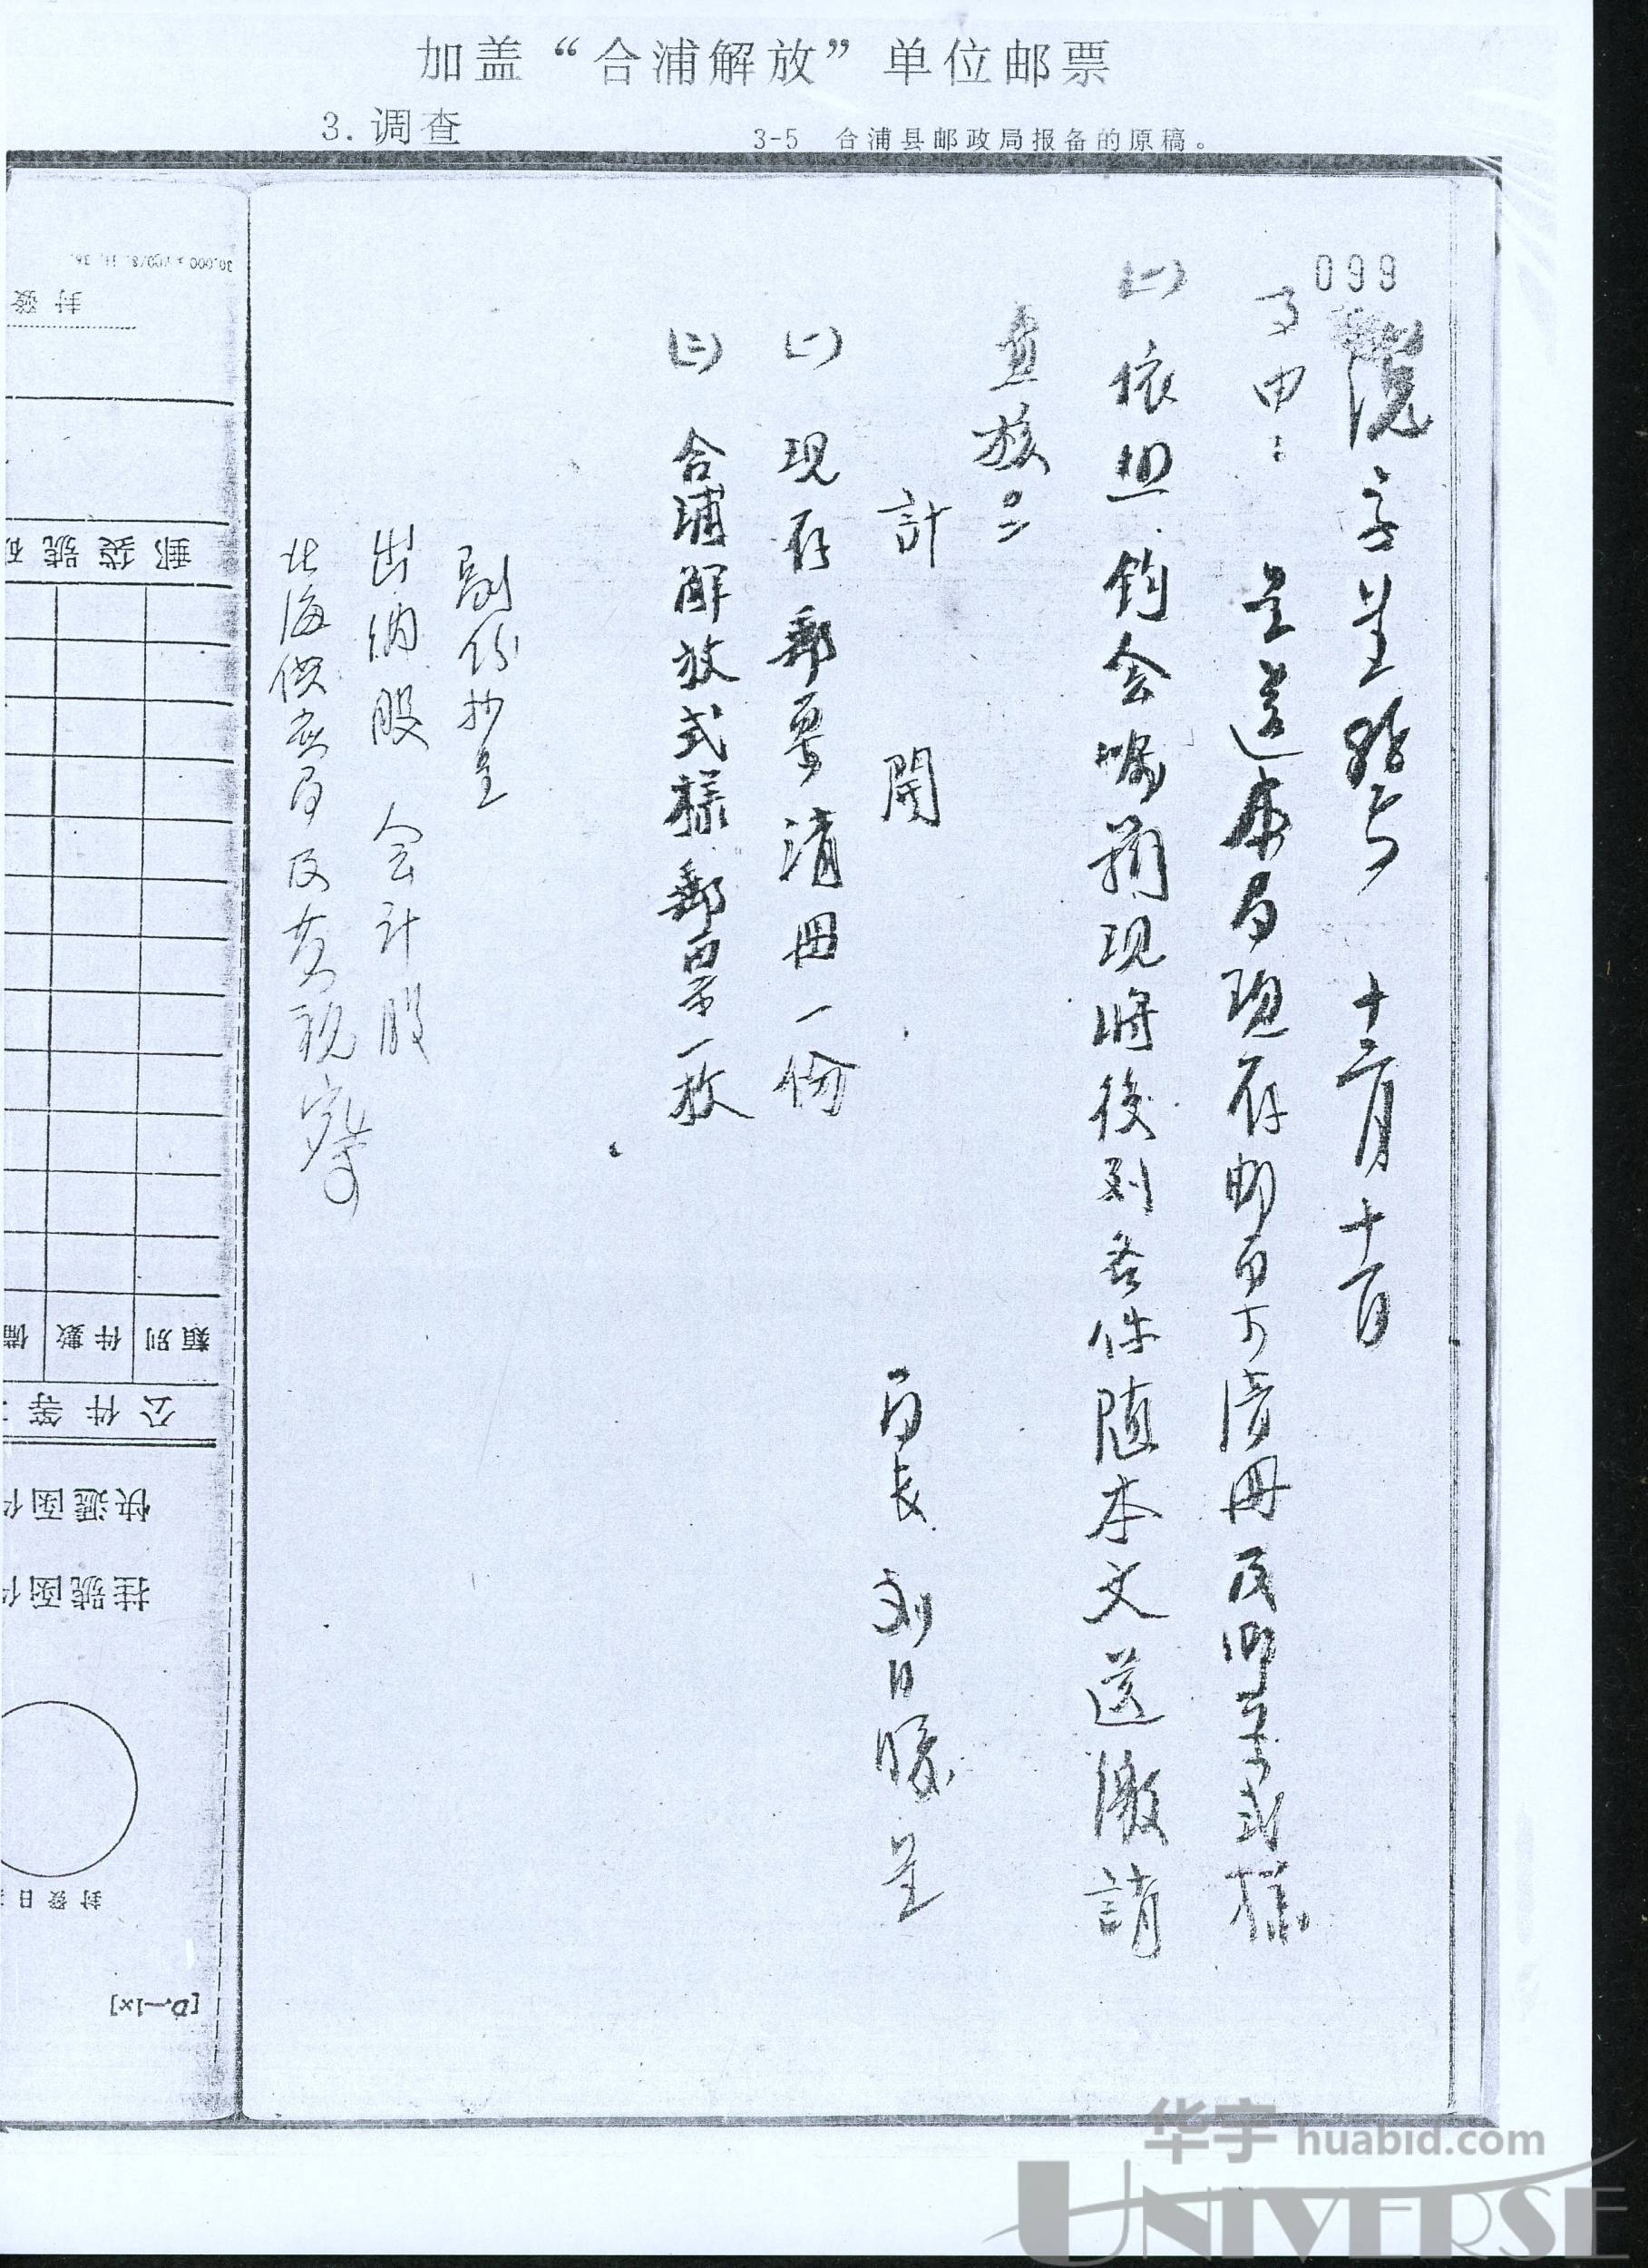 加盖“合浦解放”单位邮票
3.调查
3-5 合浦县邮政局报备的原稿。
099
字呈 号 十二月十一日
事由：呈送本局现存邮票清册及邮票式様
(一)依照钧会嘱 现将後列各件随本文送缴請
查核
計開
局長 刘日 呈
(一)现存郵票清册一份
(二)合浦解放式様郵票一枚
副份抄呈
出纳股 会计股
北海 局及黄视察
30,000
封發
郵袋號
類別 件數 備
公件等
快遞函件
挂號函件
封發日
[D.—1x]
华宇 huabid.com
UNIVERSE